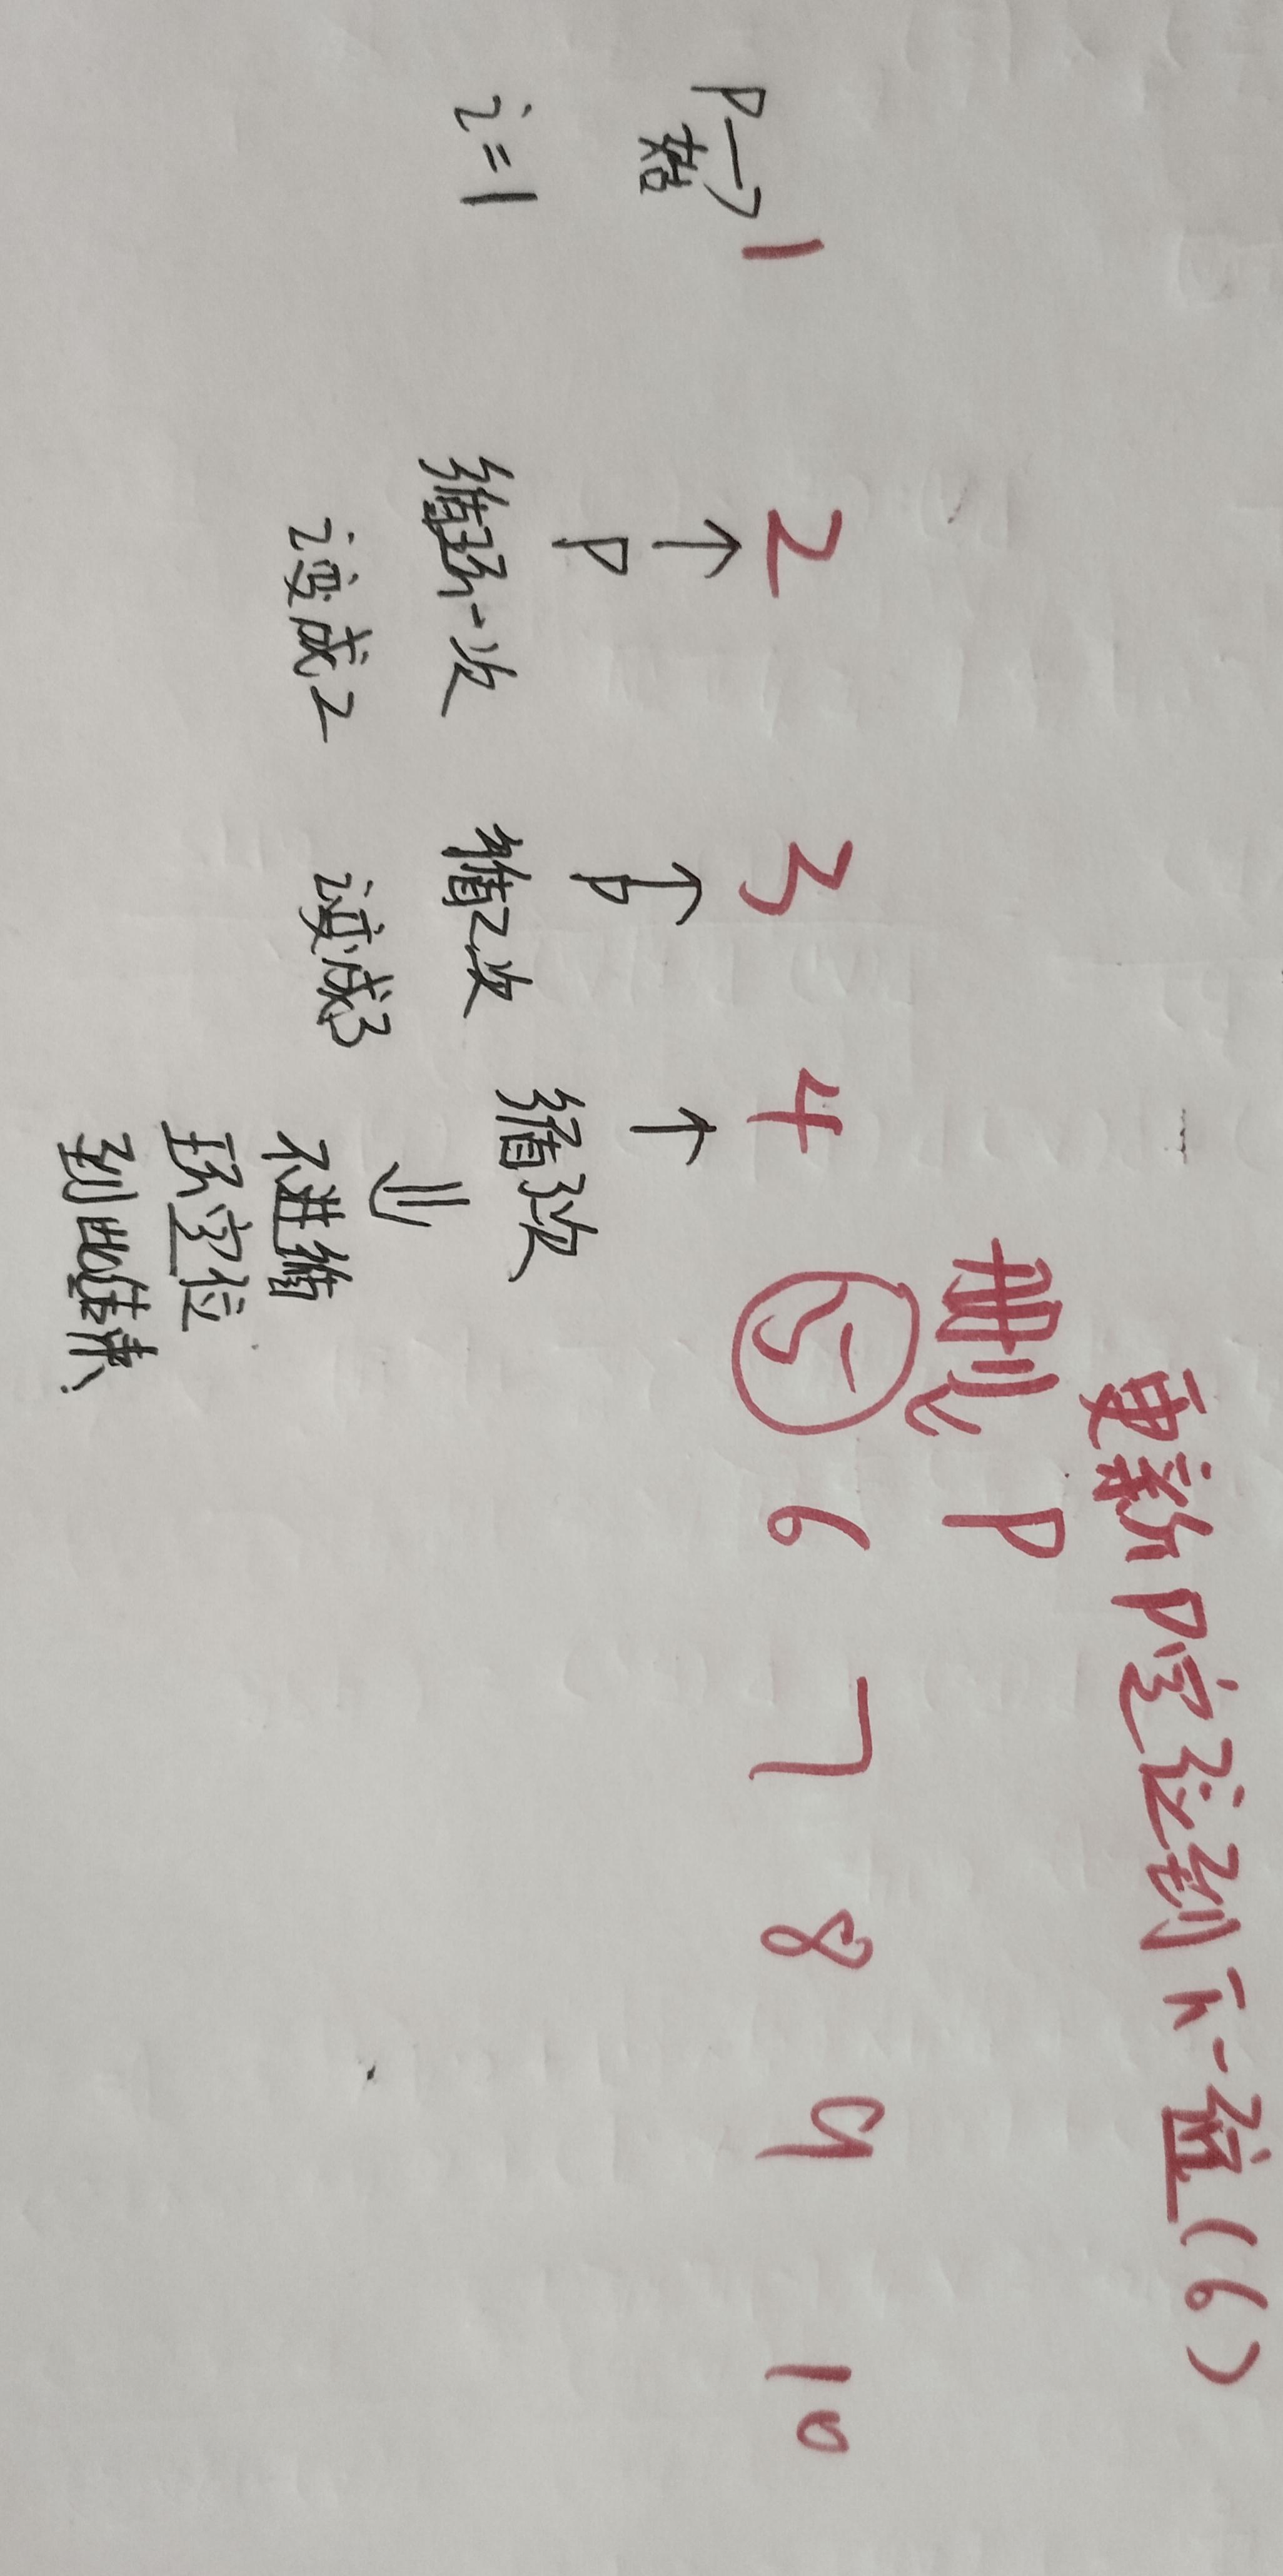 更新P定这到下一位(6)
删 P
1 2 3 4 5 6 7 8 9 10
P→ ↑ ↑ ↑
始 P P
i=1 循环一次 循2次 循3次
i变成2 i变成3 ⇓
不进循
环定位
到此结束